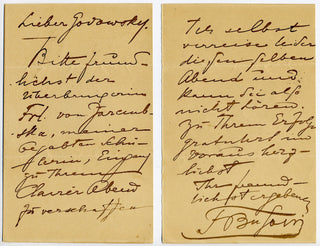 Lieber Godowsky.
Bitte freund-
lichst der
Überbringerin
Frl. von Jarcmb-
ska, meiner
begabten Schü-
lerin, Eingang
zu Ihrem
Clavier Abend
zu verschaffen
Ich selbst
verreise leider
diesen selben
Abend und
kann Sie also
nicht hören.
Zu Ihrem Erfolg
gratulirt im
voraus herz-
lichst
Ihr freund-
lichst ergebener
F Busoni